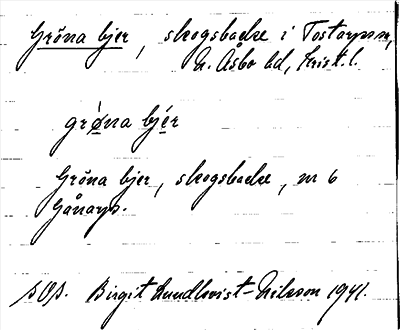 Gröna bjer, skogsbacke i Tostarps sn,
N. Åsbo hd, Krist. l.
grö̀na bjér
Gröna bjer, skogsbacke, nr 6
Gånarp.
Birgit Lundkvist-Nilsson 1941.